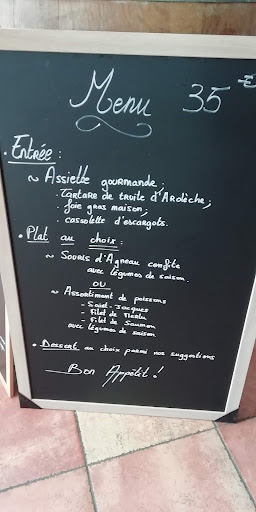 Menu 35 €
• Entrée :
~ Assiette gourmande,
. Tartare de truite d'Ardèche ;
foie gras maison ;
cassolette d'escargots.
• Plat au choix :
~ Souris d'Agneau confite
avec légumes de saison.
OU
~ Assortiment de poissons
- Saint-Jacques
- Filet de Merlu
- Filet de Saumon
avec légumes de saison
• Dessert au choix parmi nos suggestions
Bon Appétit !